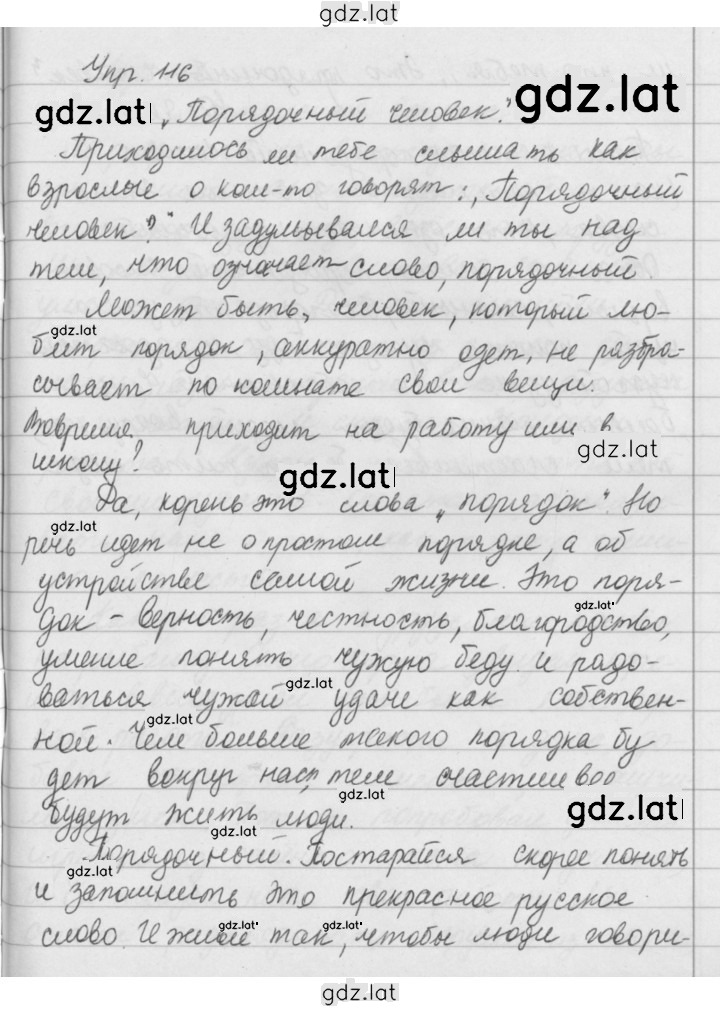 gdz.lat
Упр. 116
gdz.lat
gdz.lat
„Порядочный человек."
Приходилось ли тебе слышать как
взрослые о ком-то говорят: „Порядочный
человек"? И задумывался ли ты над
тем, что означает слово, порядочный
Может быть, человек, который лю-
gdz.lat
бит порядок, аккуратно одет, не разбра-
сывает по комнате свои вещи.
Вовремя приходит на работу или в
gdz.lat
школу?
gdz.lat
Да, корень это слова „порядок". Но
gdz.lat
речь идет не о простом порядке, а об
устройстве самой жизни. Это поря-
gdz.lat
док - верность, честность, благородство,
умение понять чужую беду и радо-
gdz.lat
ваться чужой удаче как собствен-
gdz.lat
ной. Чем больше такого порядка бу
дет вокруг нас, тем счастливее
gdz.lat
gdz.lat
будут жить люди.
Порядочный. Постарайся скорее понять
gdz.lat
и запомнить это прекрасное русское
gdz.lat
gdz.lat
gdz.lat
слово. И живи так, чтобы люди говори-
gdz.lat